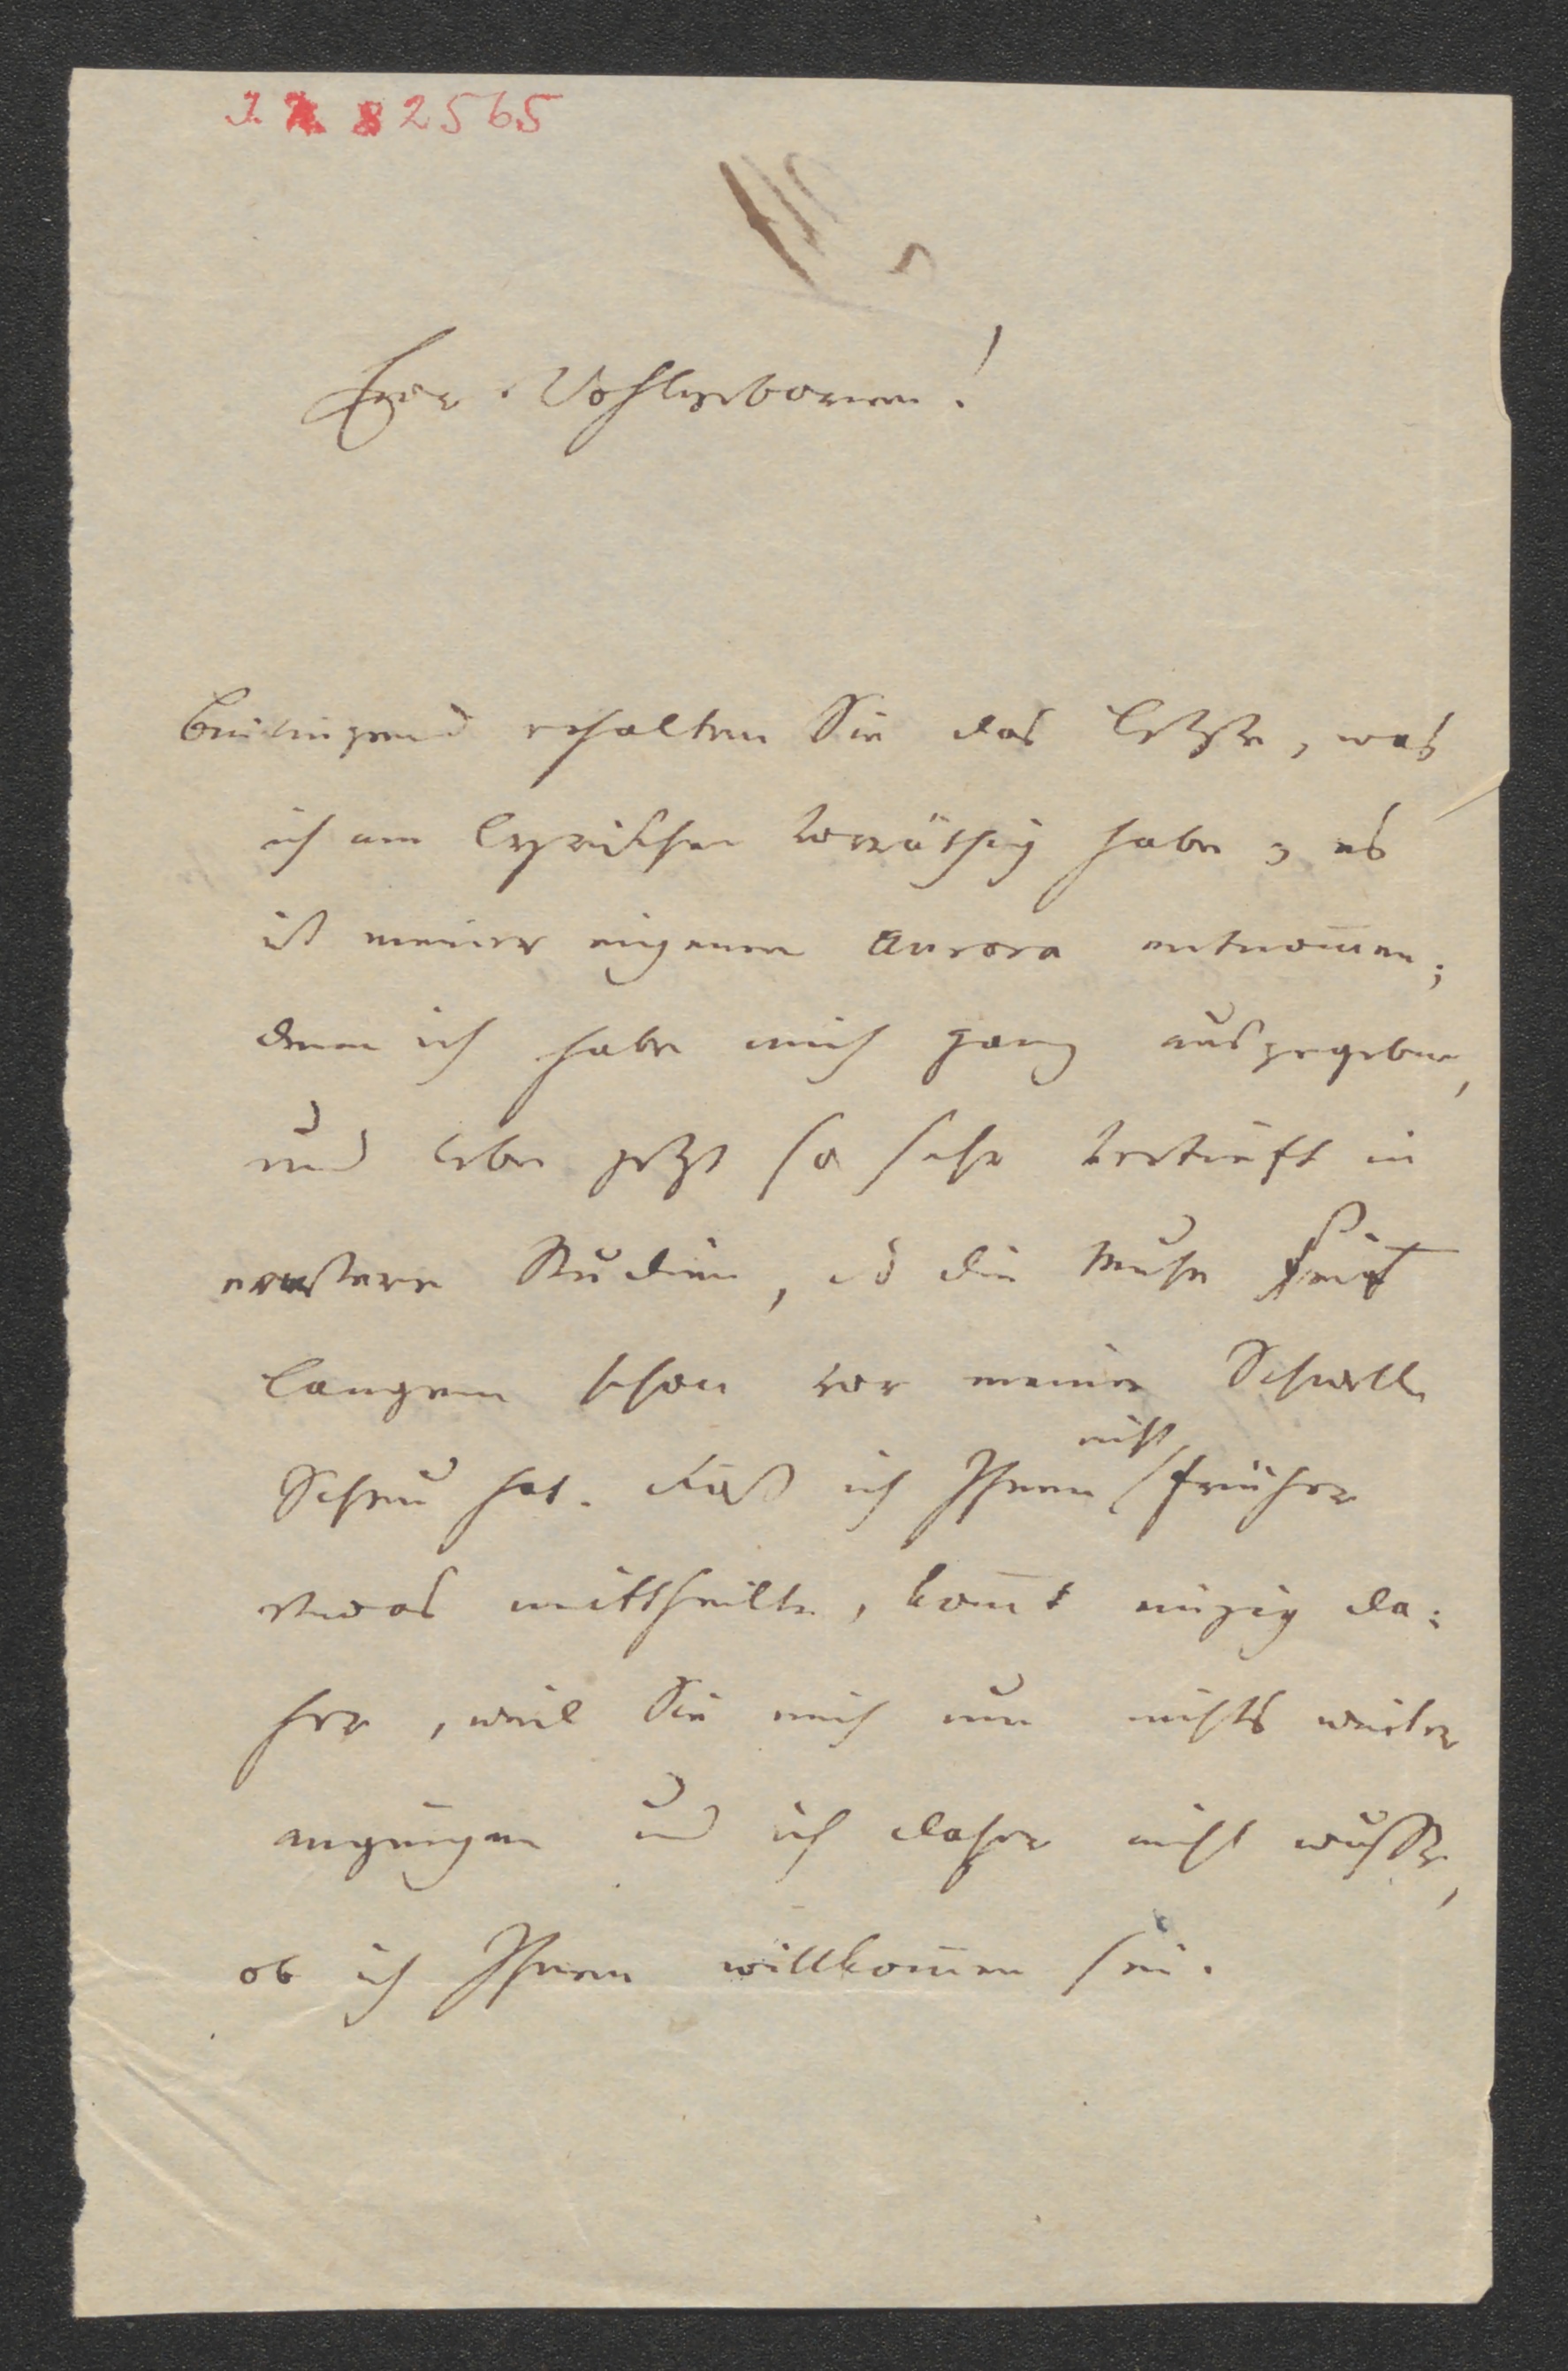 J. N. 82565
Euer Wohlgeboren!
Beiliegend erhalten Sie das Letzte, was
ich am lyrischen vorräthig habe; es
ist meiner eigenen Aurora entnom̄en;
denn ich habe mich ganz ausgegeben,
und lebe jetzt so sehr vertieft in
ernstere Studien, dß die Muse seit
langem schon vor meiner Schwelle
Scheu hat. Daß ich Ihnen nicht früher
etwas mittheilte, kom̄t einzig da=
her, weil Sie mich um nichts weiter
angingen und ich daher nicht wußte,
ob ich Ihnen willkom̄en sei.